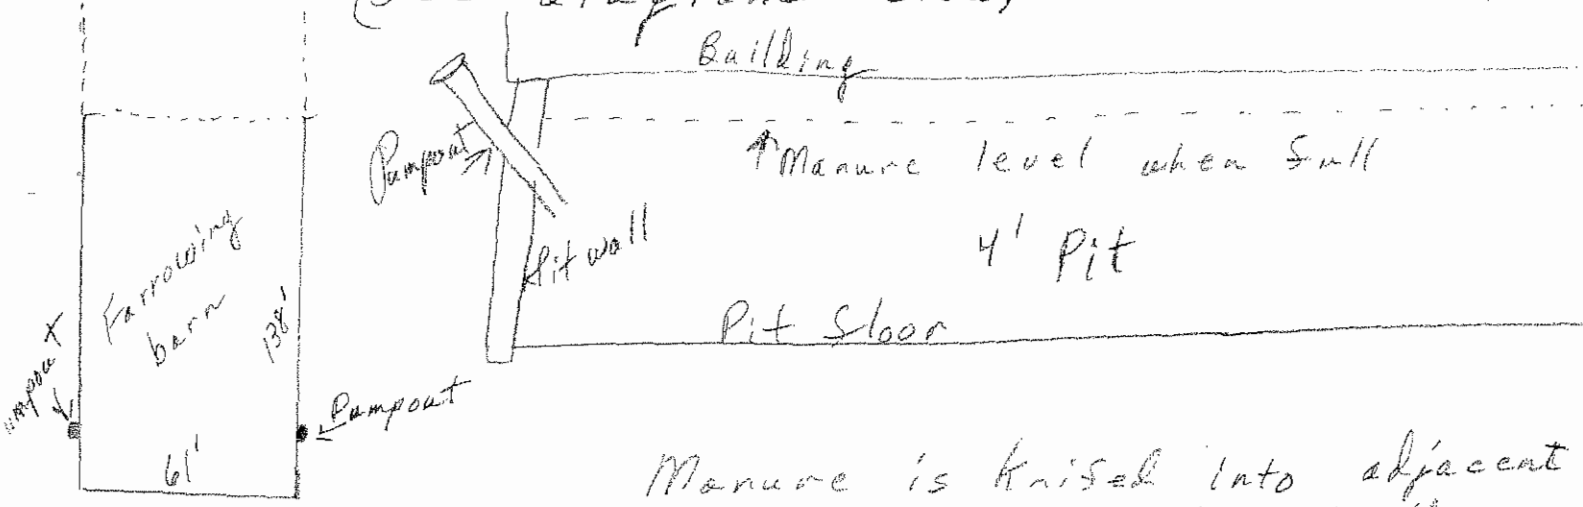 Building
Pumpout
↑Manure level when full
Pit wall
4' Pit
Pit floor
Farrowing
barn
138'
61'
Pumpout
Manure is knifed into adjacent